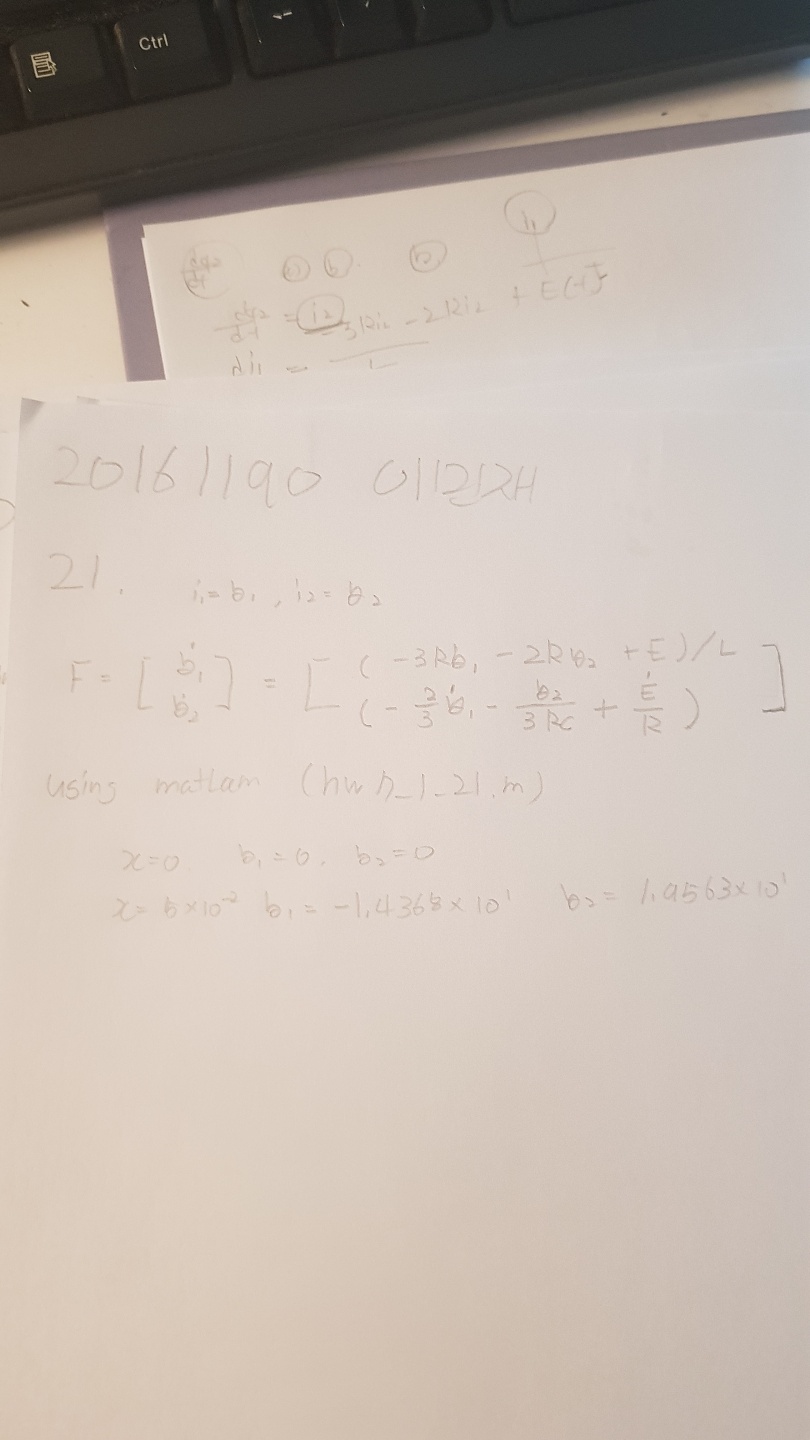 Ctrl
i₁
dq₂/dt
dq₂/dt = i₂
di₁ = -3Ri₂ - 2Ri₂ + E(t) / L
20161190 이민재
21. i₁ = b₁, i₂ = b₂
F = [ḃ₁ ḃ₂] = [(-3Rb₁ - 2Rb₂ + E)/L (-2/3 ḃ₁ - b₂/3RC + Ė/R)]
using matlam (hw7_1_21.m)
x=0 b₁=0, b₂=0
x= 5×10⁻² b₁ = -1.4368×10¹ b₂ = 1.9563×10¹